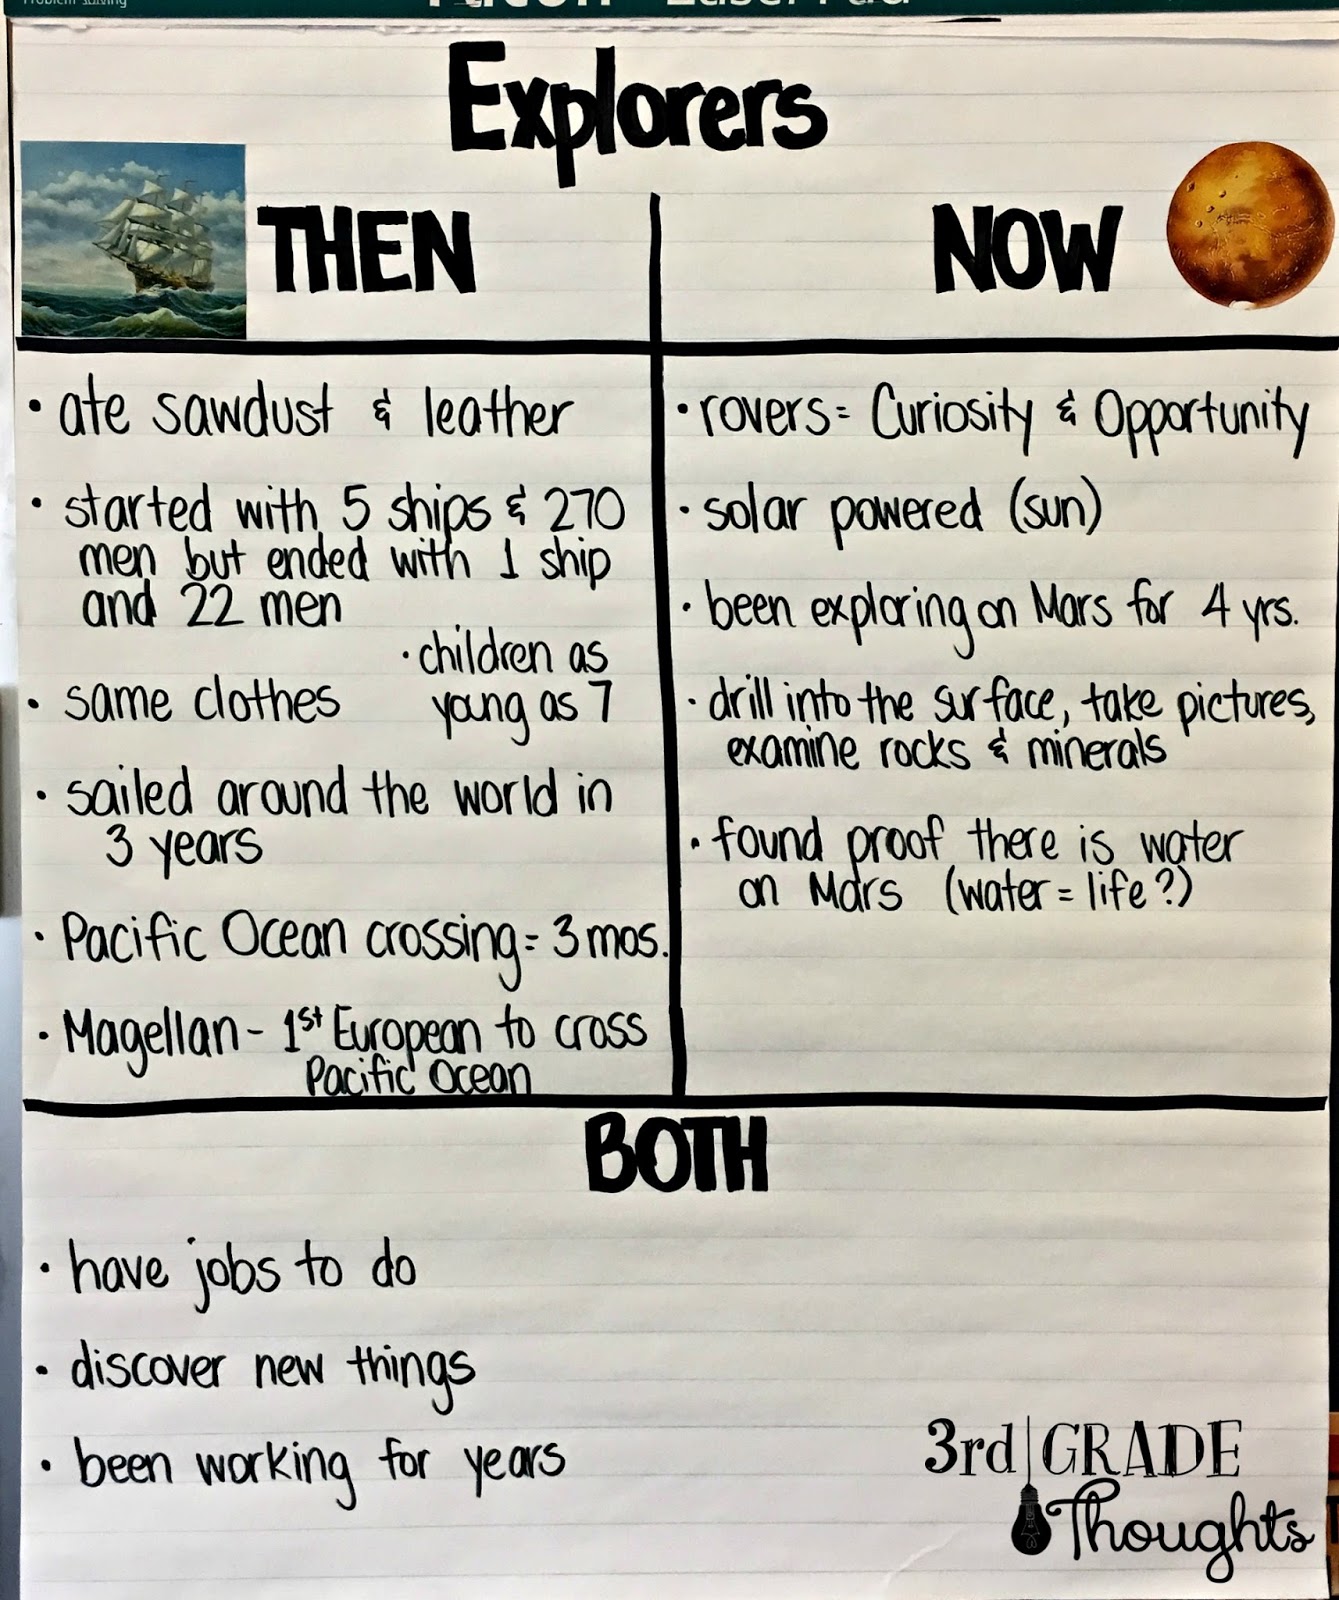 Problem Solving
Explorers
THEN
• ate sawdust & leather
• started with 5 ships & 270
men but ended with 1 ship
and 22 men
• children as
young as 7
• same clothes
• sailed around the world in
3 years
• Pacific Ocean crossing = 3 mos.
• Magellan - 1st European to cross
Pacific Ocean
NOW
• rovers = Curiosity & Opportunity
• solar powered (sun)
• been exploring on Mars for 4 yrs.
• drill into the surface, take pictures,
examine rocks & minerals
• found proof there is water
on Mars (water = life?)
BOTH
• have jobs to do
• discover new things
• been working for years
3rd GRADE
Thoughts